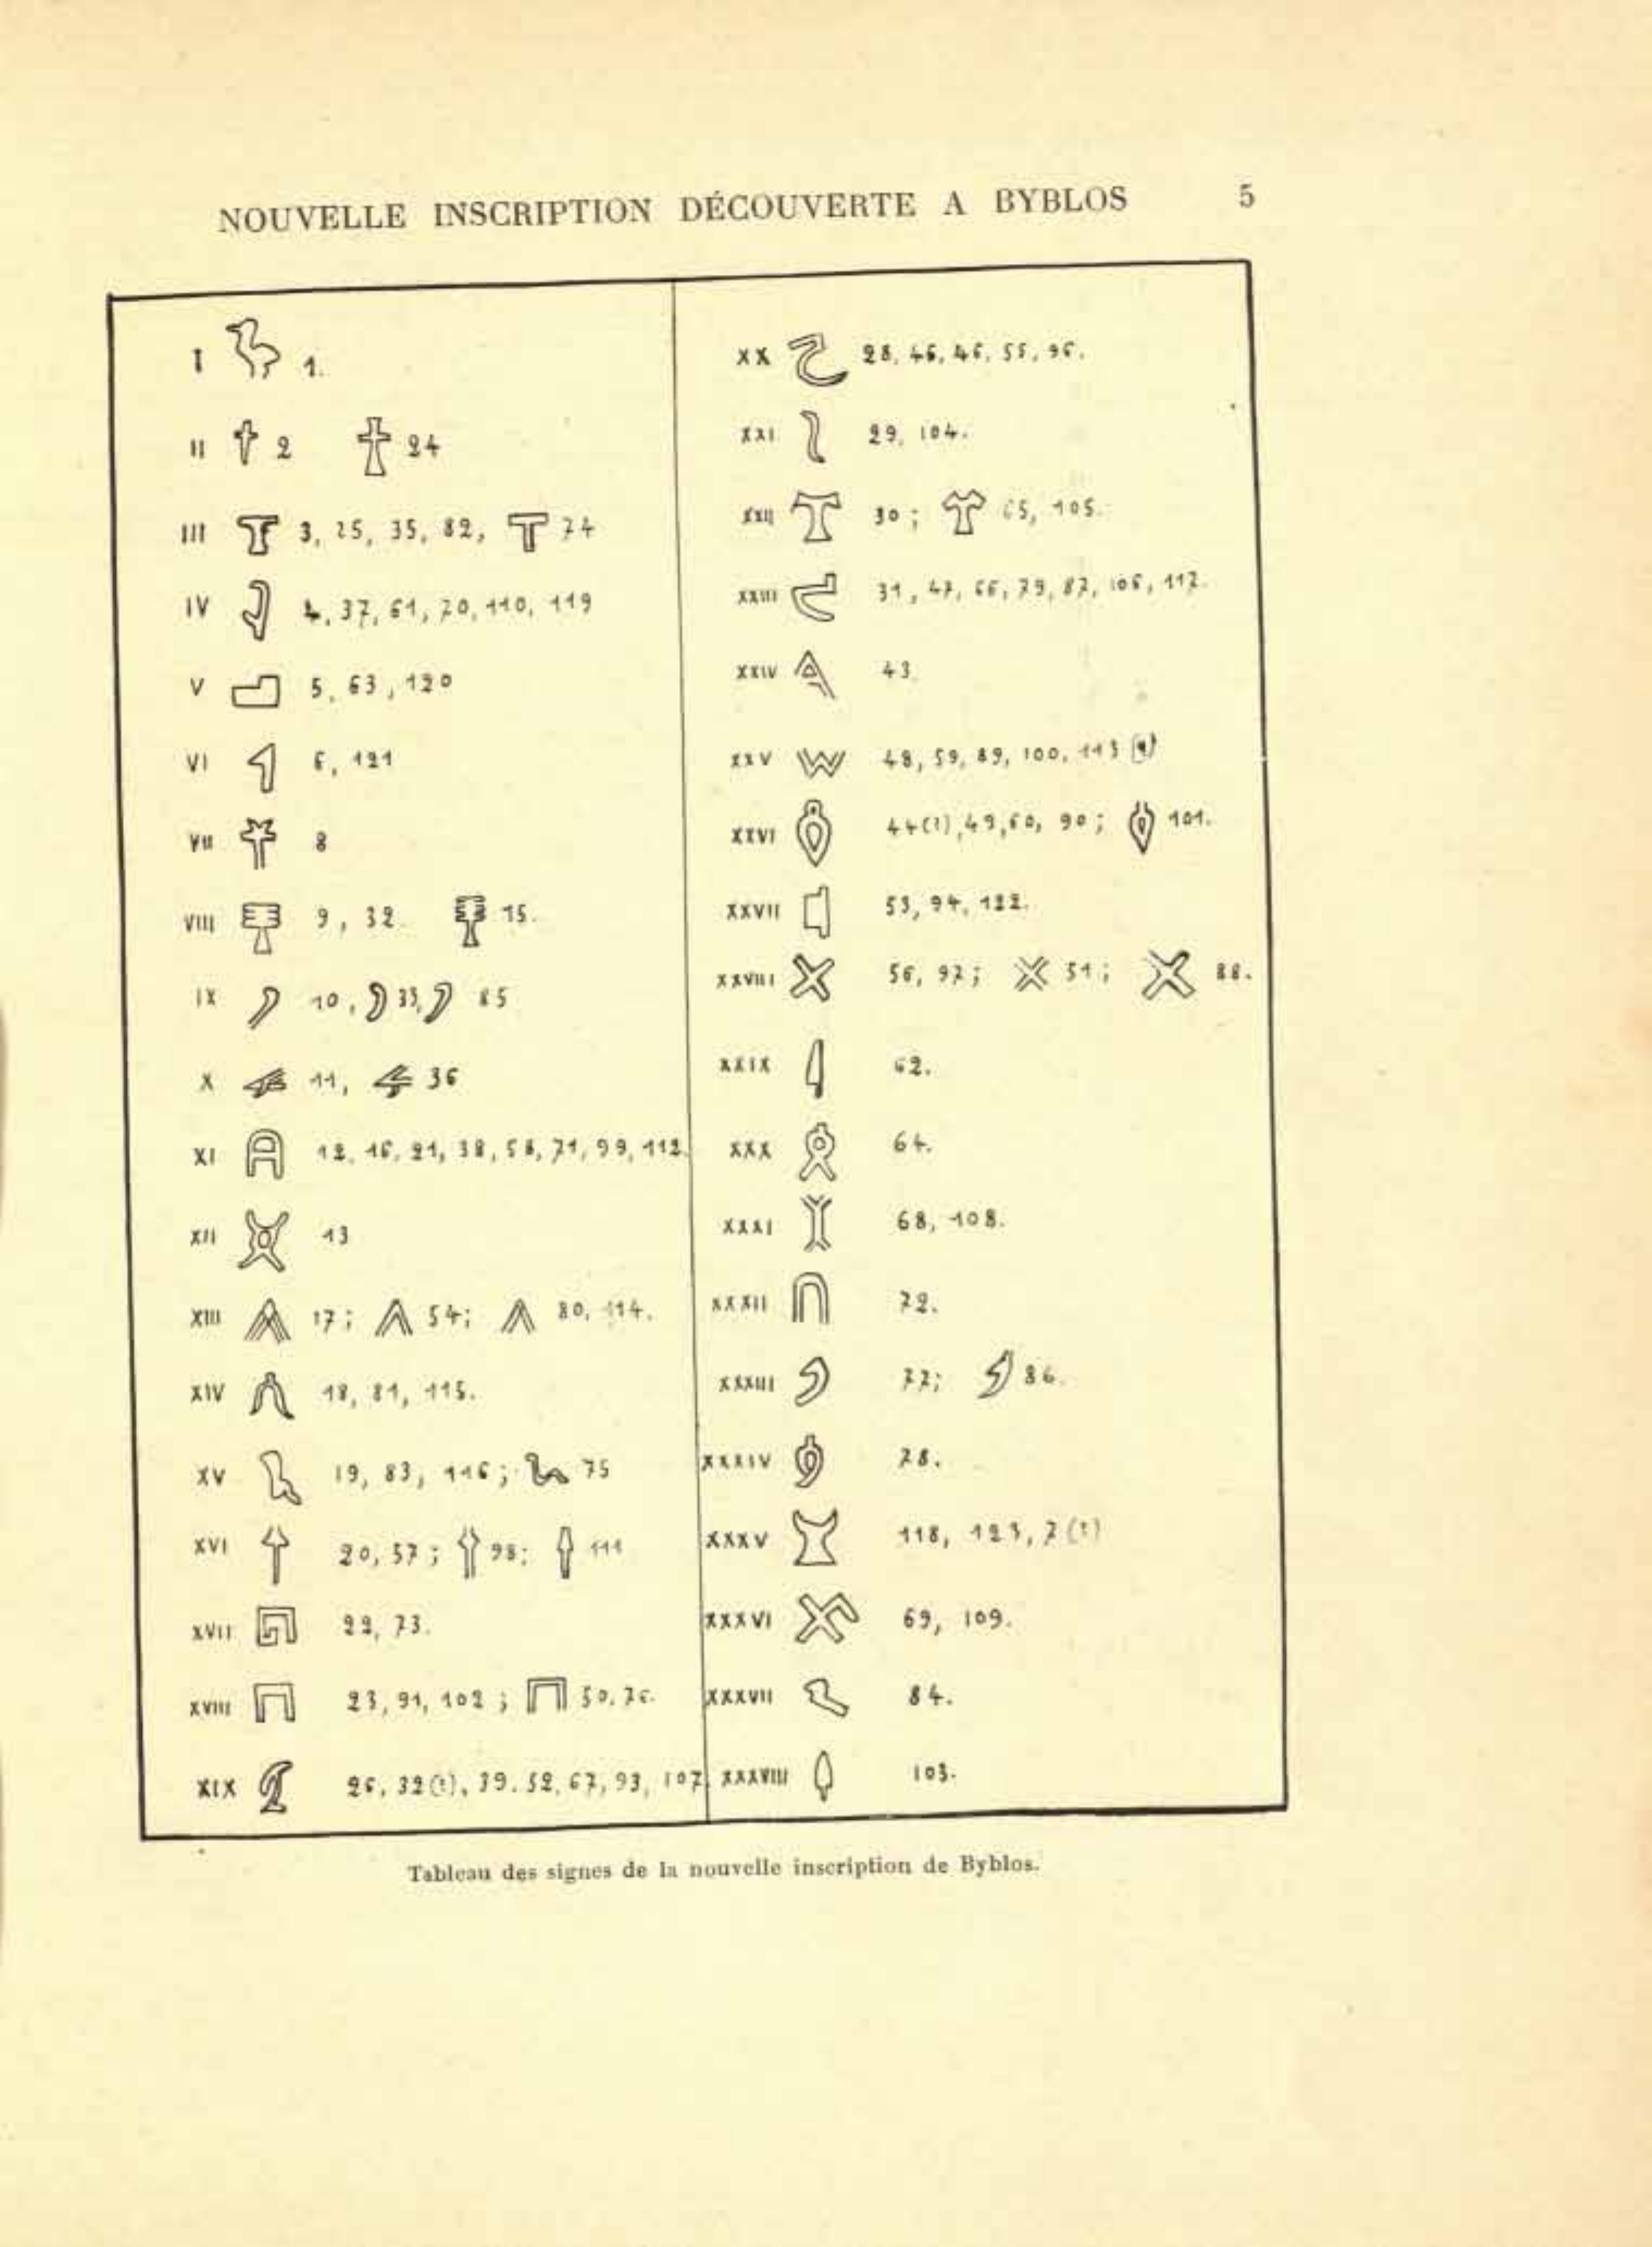 NOUVELLE INSCRIPTION DÉCOUVERTE A BYBLOS 5
I 1.
II 2 24
III 3, 25, 35, 82, 74
IV 4, 37, 61, 70, 110, 119
V 5, 63, 120
VI 6, 121
VII 8
VIII 9, 32. 15.
IX 10, 33, 85
X 11, 36
XI 12, 16, 21, 38, 58, 71, 99, 112.
XII 13
XIII 17; 54; 80, 114.
XIV 18, 81, 115.
XV 19, 83, 116; 75
XVI 20, 57; 98; 111
XVII 22, 73.
XVIII 23, 91, 102; 50, 76.
XIX 26, 32(?), 39. 52, 67, 93, 107
XX 28, 46, 55, 96.
XXI 29, 104.
XXII 30; 65, 105.
XXIII 31, 47, 66, 79, 87, 106, 117.
XXIV 43.
XXV 48, 59, 89, 100, 113
XXVI 44(?), 49, 60, 90; 101.
XXVII 53, 94, 122.
XXVIII 56, 97; 51; 88.
XXIX 62.
XXX 64.
XXXI 68, 108.
XXXII 72.
XXXIII 77; 86.
XXXIV 78.
XXXV 118, 123, 7(?)
XXXVI 69, 109.
XXXVII 84.
XXXVIII 103.
Tableau des signes de la nouvelle inscription de Byblos.